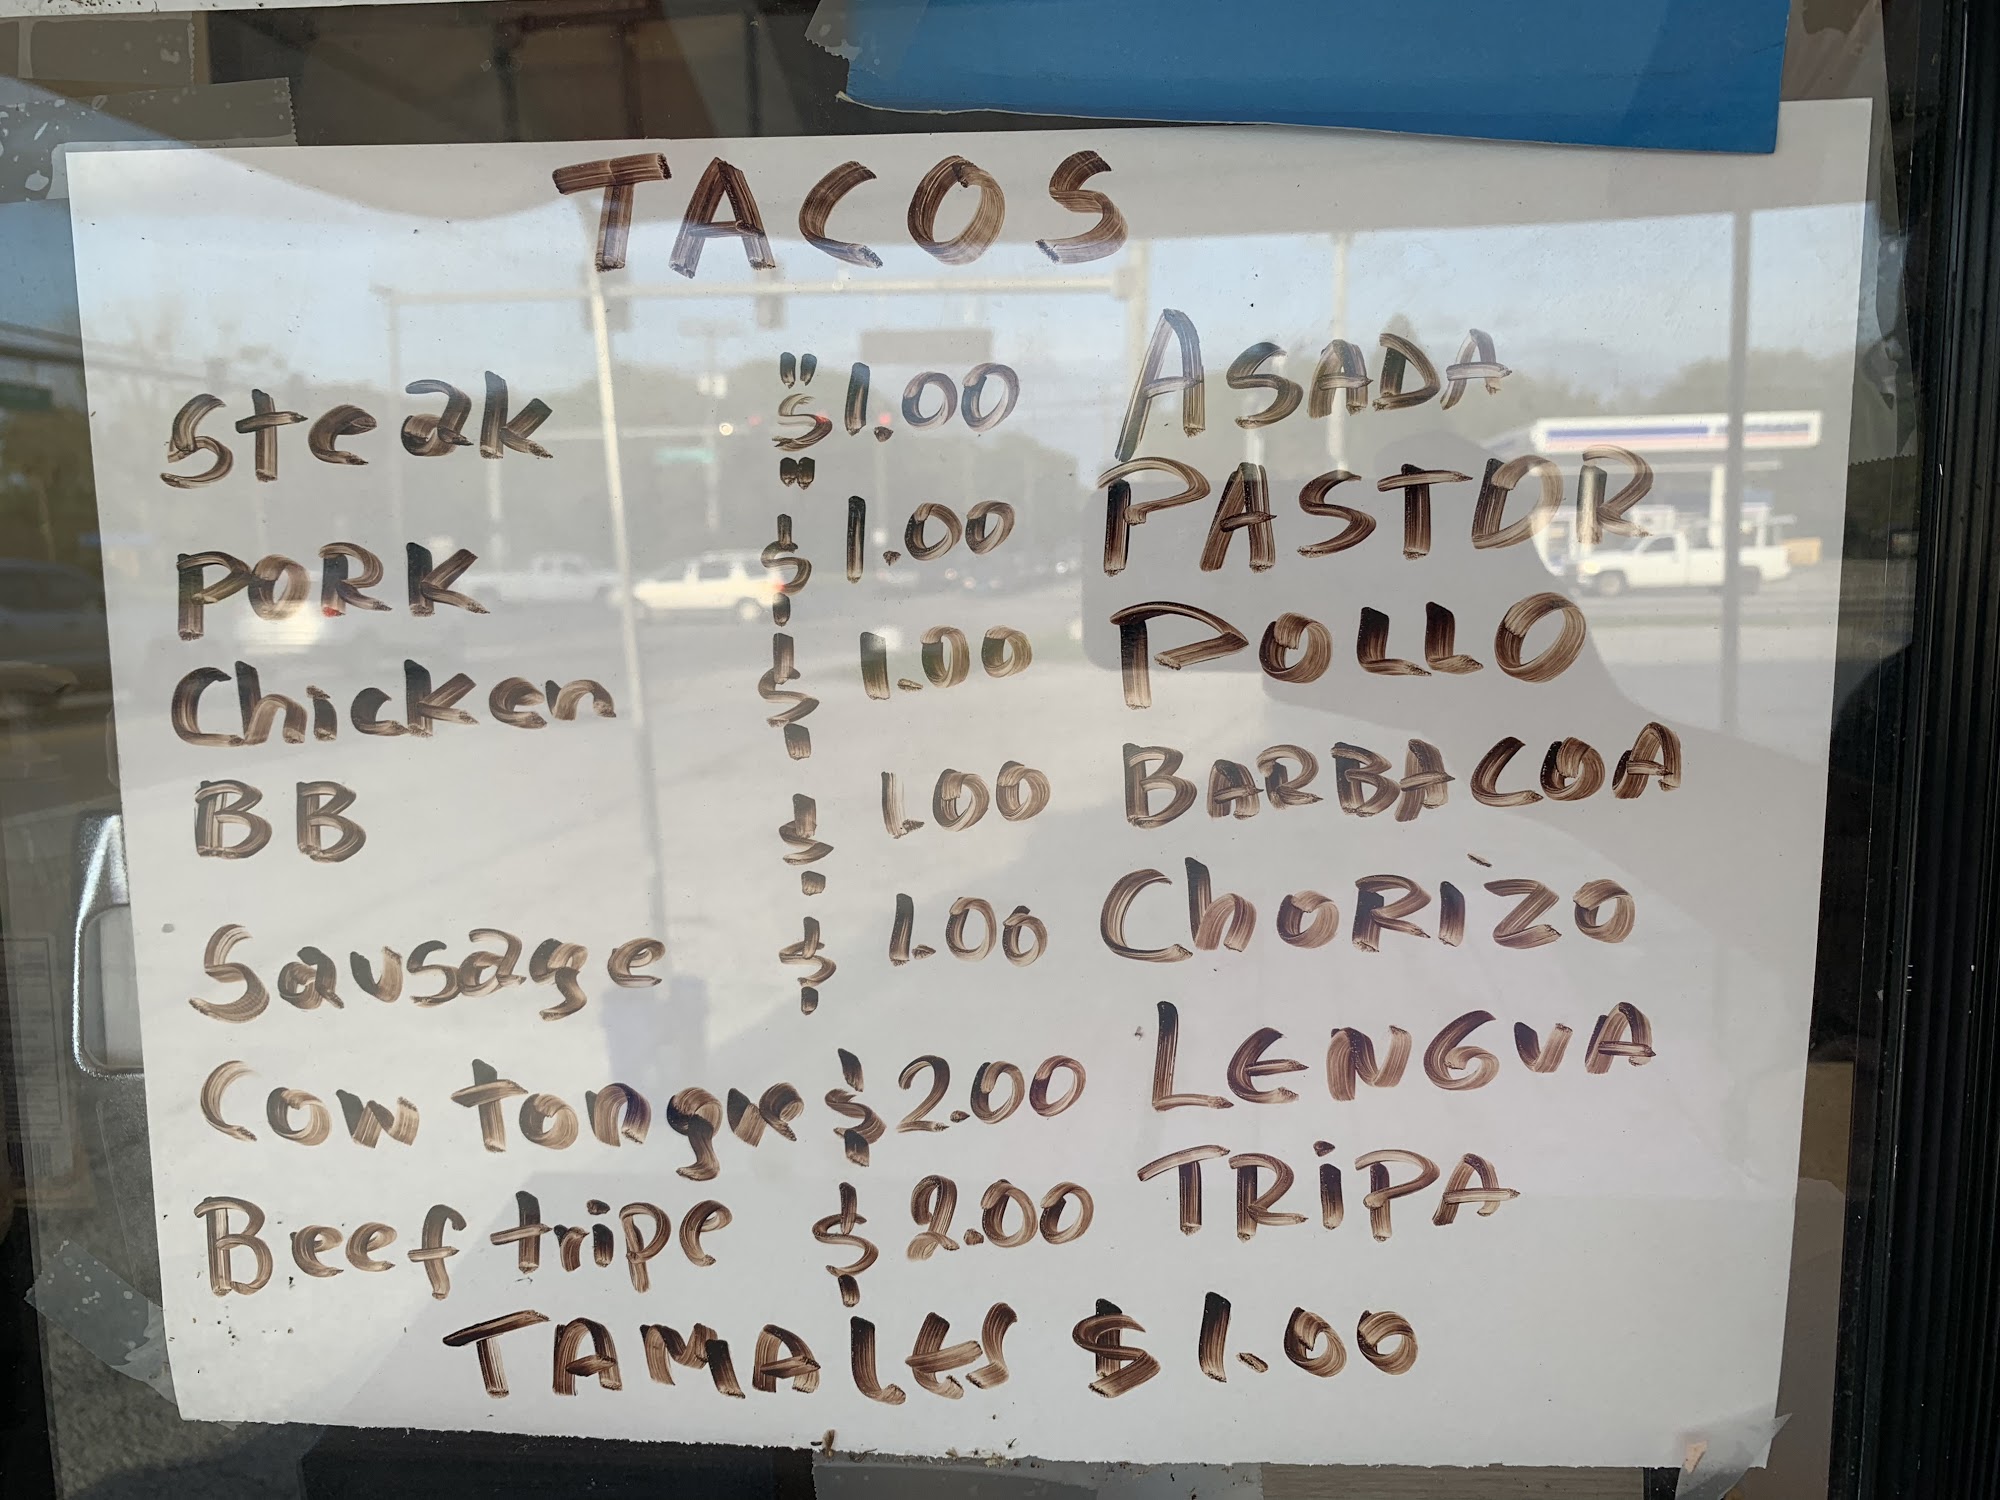 TACOS
Steak $1.00 ASADA
PORK $1.00 PASTOR
Chicken $1.00 POLLO
BB $1.00 BARBACOA
Sausage $1.00 ChORIZO
Cow tongue $2.00 LENGUA
Beef tripe $2.00 TRiPA
TAMALES $1.00